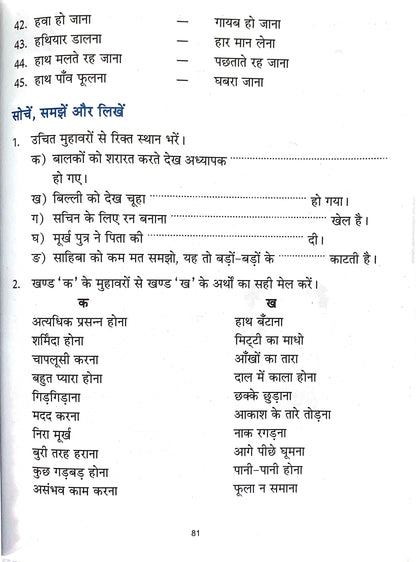 42. हवा हो जाना — गायब हो जाना
43. हथियार डालना — हार मान लेना
44. हाथ मलते रह जाना — पछताते रह जाना
45. हाथ पाँव फूलना — घबरा जाना
सोचें, समझें और लिखें
1. उचित मुहावरों से रिक्त स्थान भरें।
क) बालकों को शरारत करते देख अध्यापक ........................................
हो गए।
ख) बिल्ली को देख चूहा ........................................ हो गया।
ग) सचिन के लिए रन बनाना ........................................ खेल है।
घ) मूर्ख पुत्र ने पिता की ........................................ दी।
ङ) साहिबा को कम मत समझो, यह तो बड़ों-बड़ों के .................... काटती है।
2. खण्ड 'क' के मुहावरों से खण्ड 'ख' के अर्थों का सही मेल करें।
क ख
अत्यधिक प्रसन्न होना हाथ बँटाना
शर्मिंदा होना मिट्टी का माधो
चापलूसी करना आँखों का तारा
बहुत प्यारा होना दाल में काला होना
गिड़गिड़ाना छक्के छुड़ाना
मदद करना आकाश के तारे तोड़ना
निरा मूर्ख नाक रगड़ना
बुरी तरह हराना आगे पीछे घूमना
कुछ गड़बड़ होना पानी-पानी होना
असंभव काम करना फूला न समाना
81